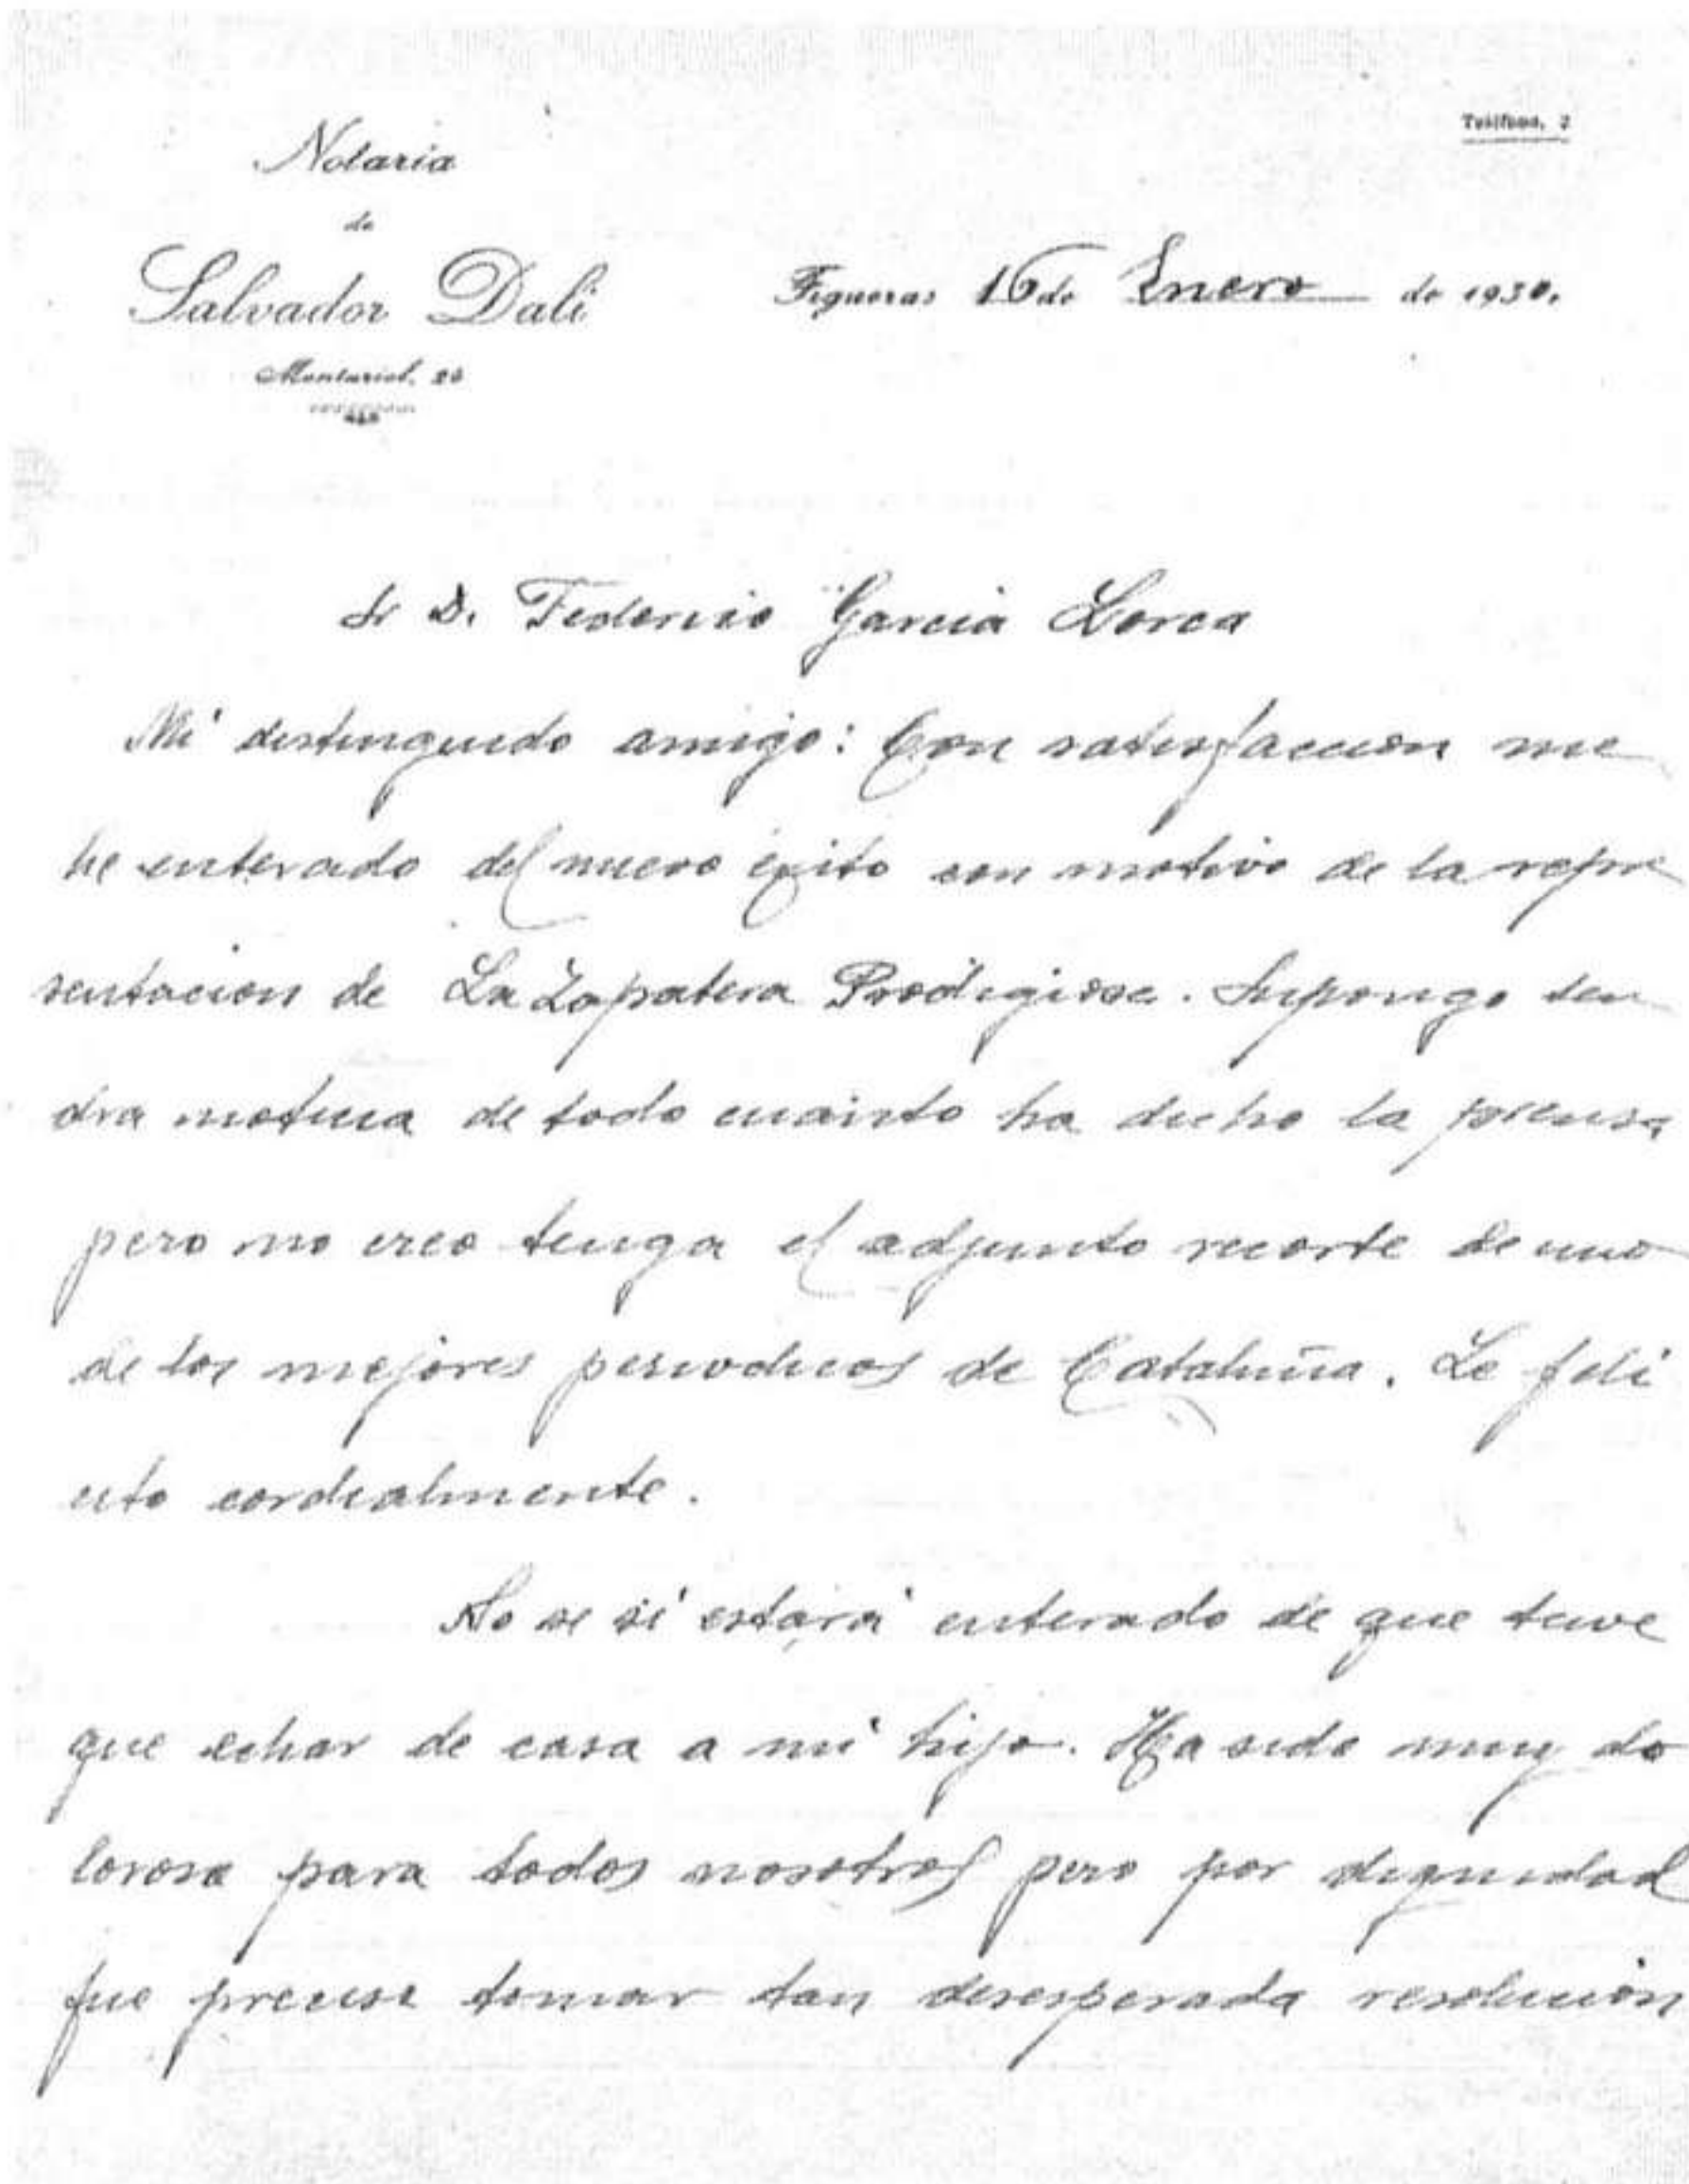 Teléfono, 2
Notaria
de
Salvador Dalí
Monturiol, 24
Figueras 16 de Enero de 1930.
Sr D. Federico Garcia Lorca
Mi distinguido amigo: Con satisfaccion me
he enterado del nuevo éxito con motivo de la repre
sentacion de La Zapatera Prodigiosa. Supongo ten
dra noticia de todo cuanto ha dicho la prensa
pero no creo tenga el adjunto recorte de uno
de los mejores periodicos de Cataluña. Le feli
cito cordialmente.
No se si estará enterado de que tuve
que echar de casa a mi hijo. Ha sido muy do
loroso para todos nosotros pero por dignidad
fue preciso tomar tan desesperada resolución